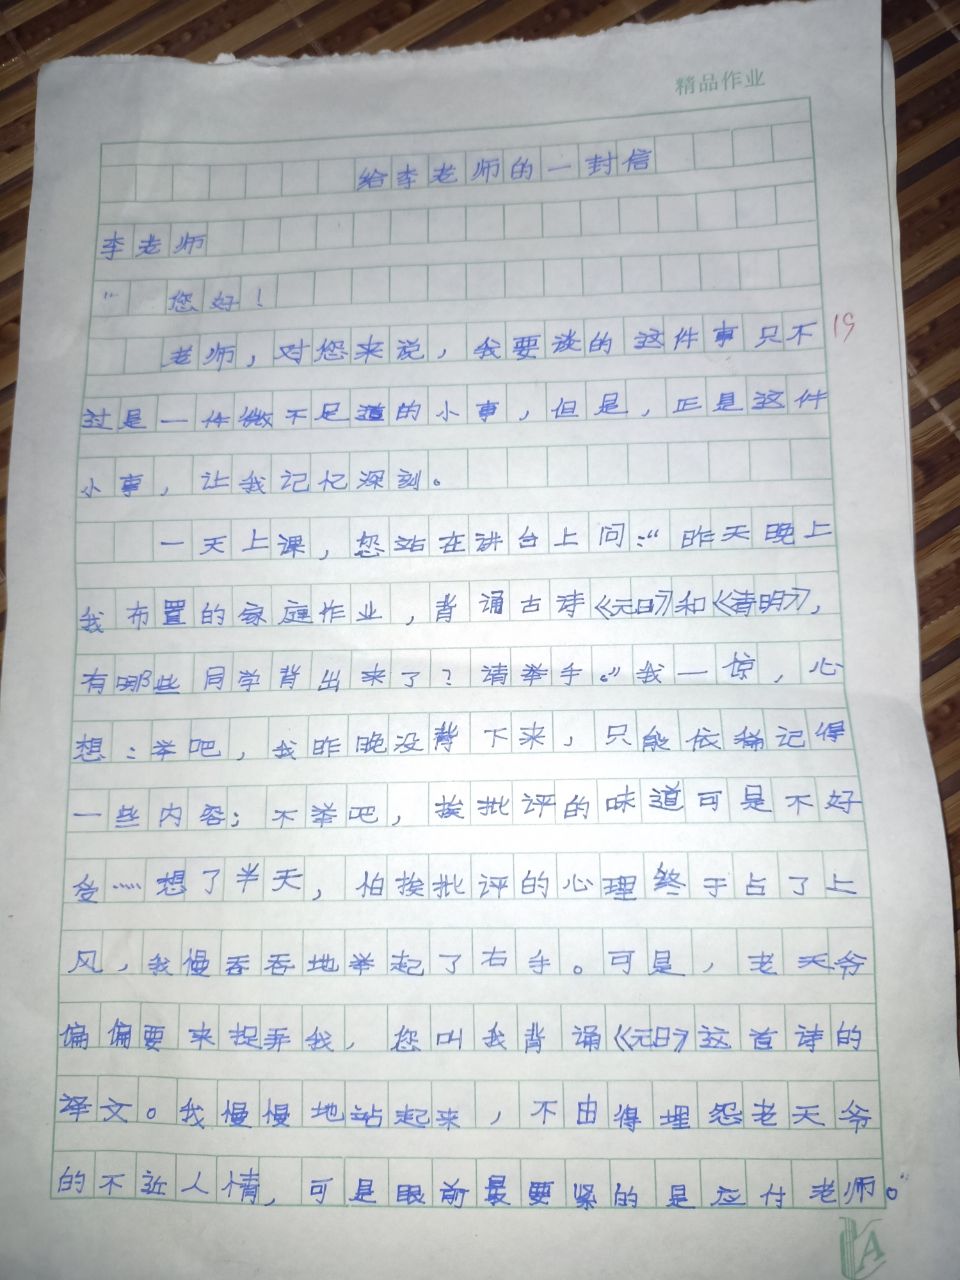 精品作业
给李老师的一封信
李老师
" 您好！
老师，对您来说，我要谈的这件事只不
过是一件微不足道的小事，但是，正是这件
小事，让我记忆深刻。
一天上课，您站在讲台上问：“昨天晚上
我布置的家庭作业，背诵古诗《元日》和《清明》，
有哪些同学背出来了？请举手。”我一惊，心
想：举吧，我昨晚没背下来，只能依稀记得
一些内容；不举吧，挨批评的味道可是不好
受……想了半天，怕挨批评的心理终于占了上
风，我慢吞吞地举起了右手。可是，老天爷
偏偏要来捉弄我，您叫我背诵《元日》这首诗的
译文。我慢慢地站起来，不由得埋怨老天爷
的不近人情，可是眼前最要紧的是应付老师。
A